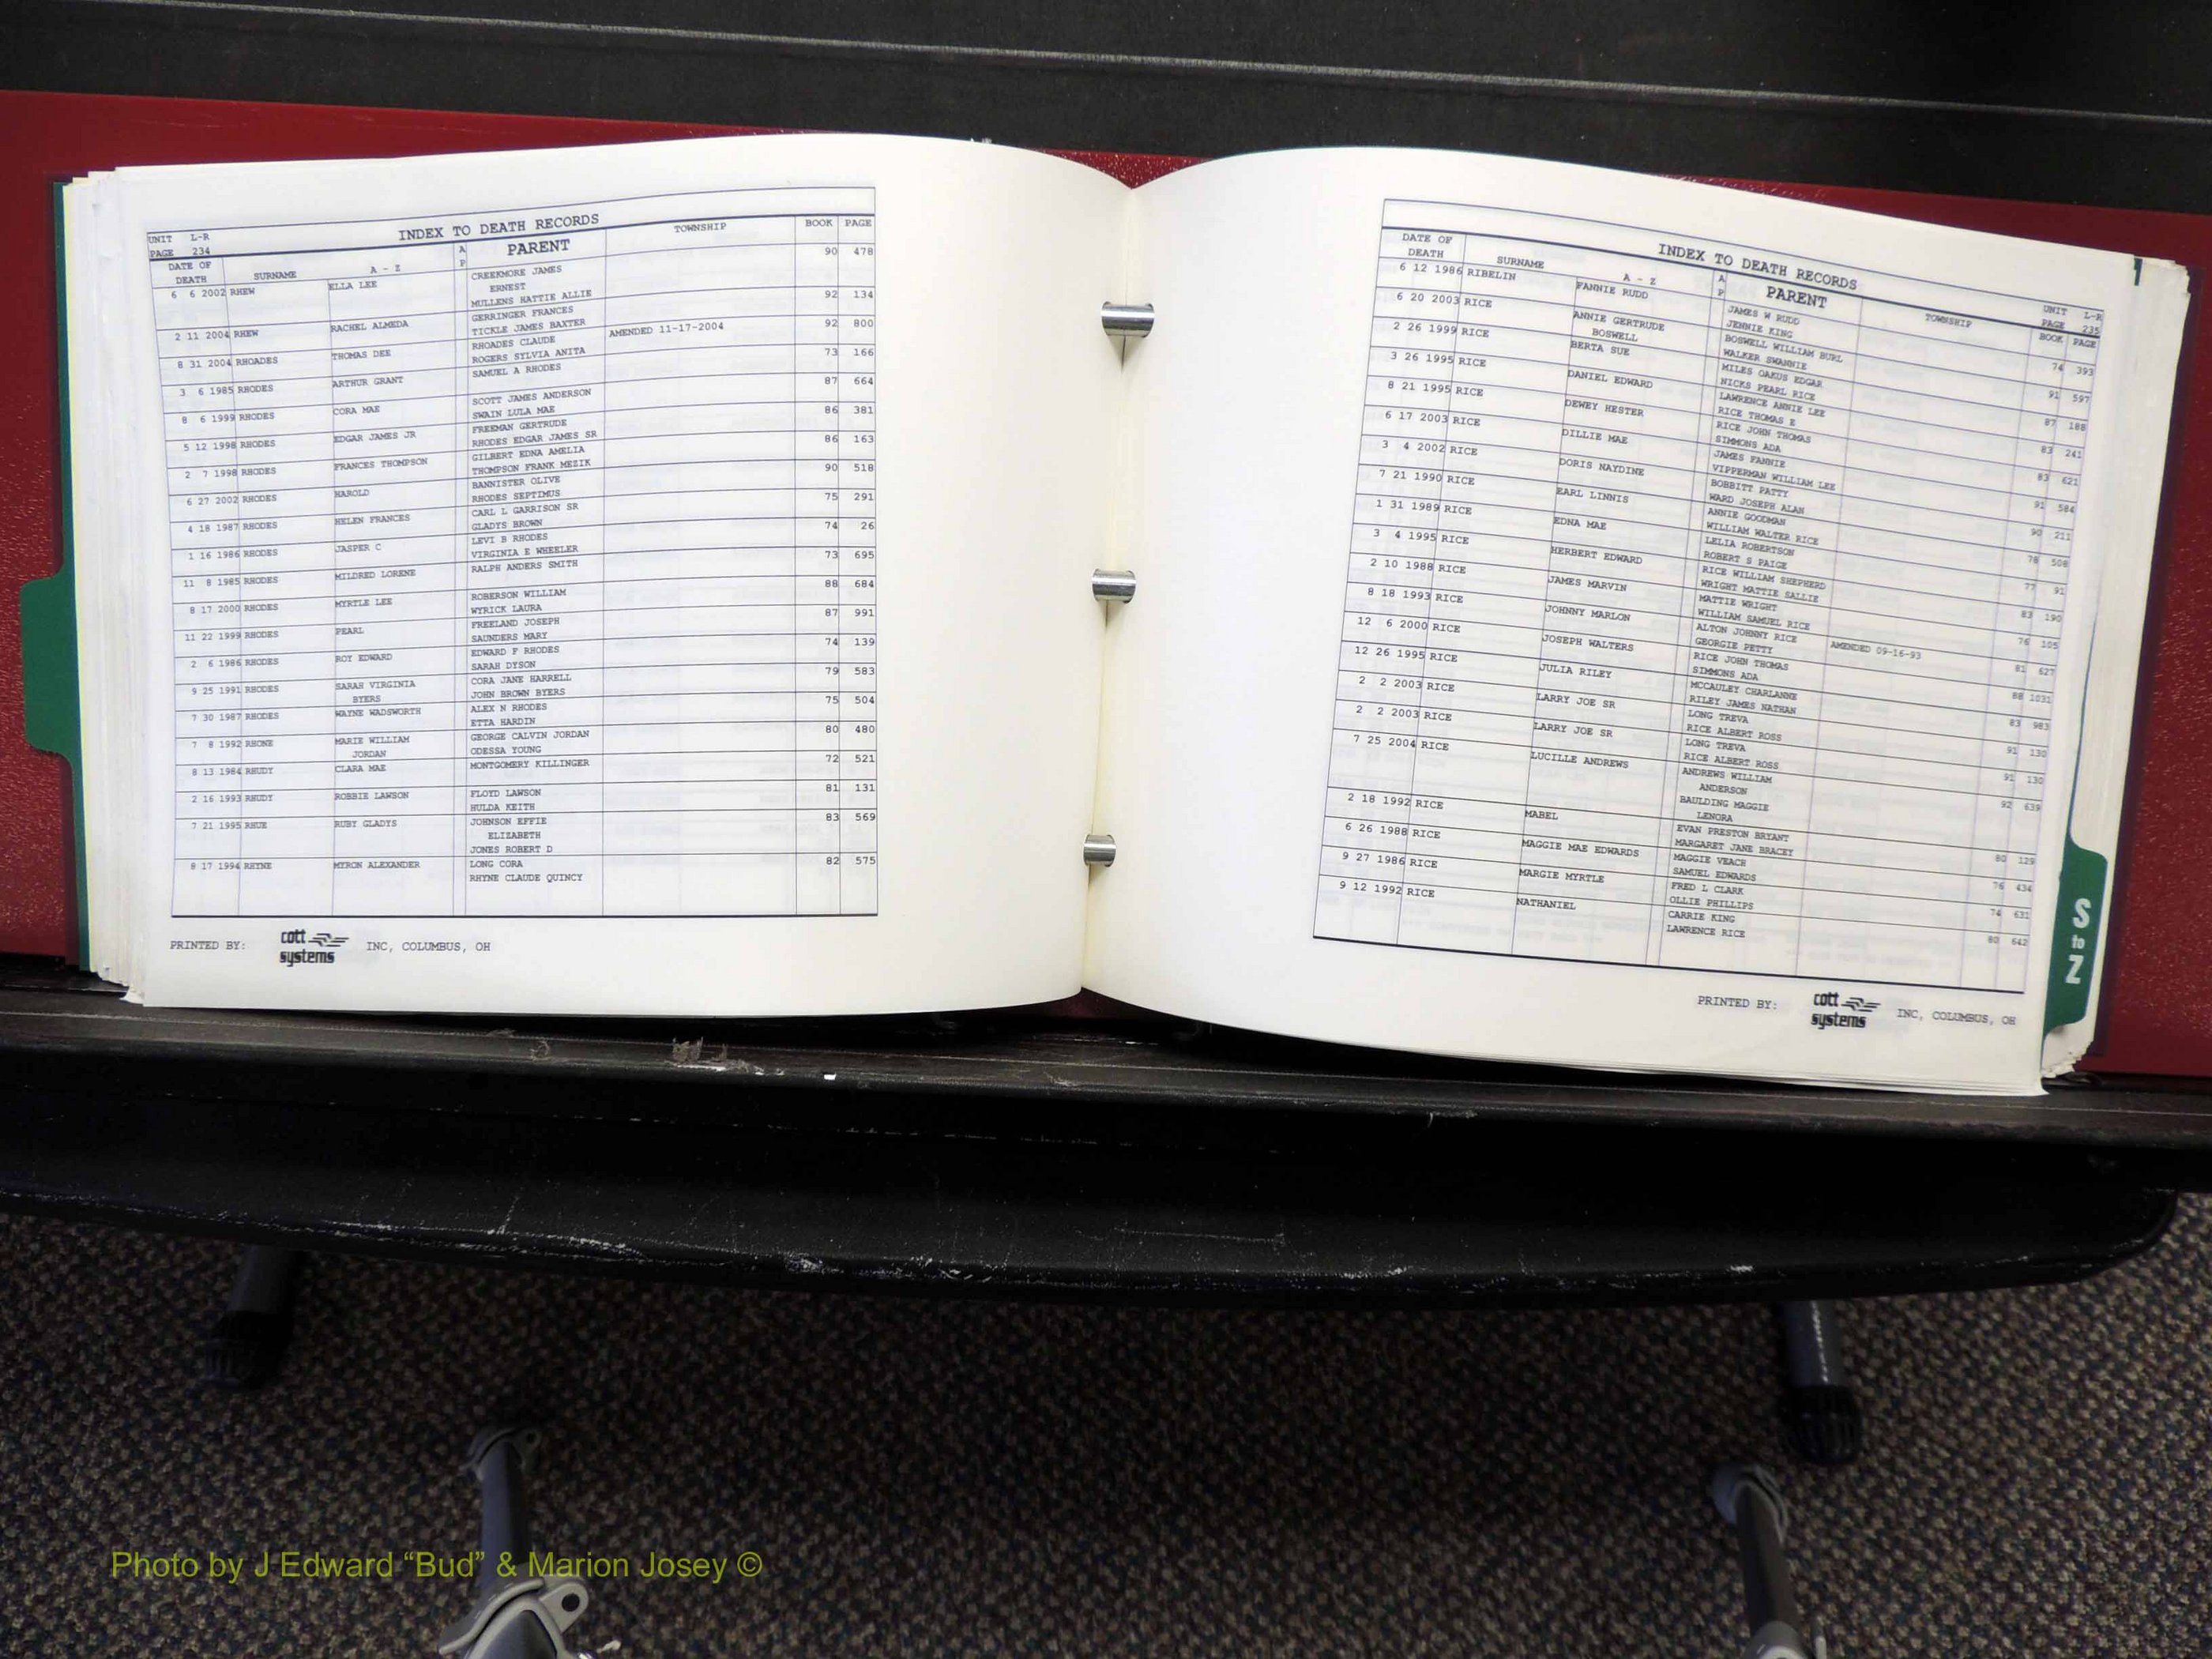 UNIT L-R INDEX TO DEATH RECORDS
PAGE 234
DATE OF DEATH SURNAME A - Z A P PARENT TOWNSHIP BOOK PAGE
6 6 2002 RHEW ELLA LEE CREEKMORE JAMES 90 478
ERNEST
MULLENS HATTIE ALLIE
2 11 2004 RHEW RACHEL ALMEDA GERRINGER FRANCES 92 134
TICKLE JAMES BAXTER
8 31 2004 RHOADES THOMAS DEE RHOADES CLAUDE AMENDED 11-17-2004 92 800
ROGERS SYLVIA ANITA
3 6 1985 RHODES ARTHUR GRANT SAMUEL A RHODES 73 166
8 6 1999 RHODES CORA MAE SCOTT JAMES ANDERSON 87 664
SWAIN LULA MAE
5 12 1998 RHODES EDGAR JAMES JR FREEMAN GERTRUDE 86 381
RHODES EDGAR JAMES SR
2 7 1998 RHODES FRANCES THOMPSON GILBERT EDNA AMELIA 86 163
THOMPSON FRANK MEZIK
6 27 2002 RHODES HAROLD BANNISTER OLIVE 90 518
RHODES SEPTIMUS
4 18 1987 RHODES HELEN FRANCES CARL L GARRISON SR 75 291
GLADYS BROWN
1 16 1986 RHODES JASPER C LEVI B RHODES 74 26
VIRGINIA E WHEELER
11 8 1985 RHODES MILDRED LORENE RALPH ANDERS SMITH 73 695
8 17 2000 RHODES MYRTLE LEE ROBERSON WILLIAM 88 684
WYRICK LAURA
11 22 1999 RHODES PEARL FREELAND JOSEPH 87 991
SAUNDERS MARY
2 6 1986 RHODES ROY EDWARD EDWARD F RHODES 74 139
SARAH DYSON
9 25 1991 RHODES SARAH VIRGINIA CORA JANE HARRELL 79 583
BYERS JOHN BROWN BYERS
7 30 1987 RHODES WAYNE WADSWORTH ALEX N RHODES 75 504
ETTA HARDIN
7 8 1992 RHONE MARIE WILLIAM GEORGE CALVIN JORDAN 80 480
JORDAN ODESSA YOUNG
8 13 1984 RHUDY CLARA MAE MONTGOMERY KILLINGER 72 521
2 16 1993 RHUDY ROBBIE LAWSON FLOYD LAWSON 81 131
HULDA KEITH
7 21 1995 RHUE RUBY GLADYS JOHNSON EFFIE 83 569
ELIZABETH
JONES ROBERT D
8 17 1994 RHYNE MYRON ALEXANDER LONG CORA 82 575
RHYNE CLAUDE QUINCY
PRINTED BY: cott systems INC, COLUMBUS, OH
INDEX TO DEATH RECORDS UNIT L-R
PAGE 235
DATE OF DEATH SURNAME A - Z A P PARENT TOWNSHIP BOOK PAGE
6 12 1986 RIBELIN FANNIE RUDD JAMES W RUDD 74 393
JENNIE KING
6 20 2003 RICE ANNIE GERTRUDE BOSWELL WILLIAM BURL 91 597
BOSWELL WALKER SWANNIE
2 26 1999 RICE BERTA SUE MILES OAKUS EDGAR 87 188
NICKS PEARL RICE
3 26 1995 RICE DANIEL EDWARD LAWRENCE ANNIE LEE 83 241
RICE THOMAS E
8 21 1995 RICE DEWEY HESTER RICE JOHN THOMAS 83 621
SIMMONS ADA
6 17 2003 RICE DILLIE MAE JAMES FANNIE 91 584
VIPPERMAN WILLIAM LEE
3 4 2002 RICE DORIS NAYDINE BOBBITT PATTY 90 211
WARD JOSEPH ALAN
7 21 1990 RICE EARL LINNIS ANNIE GOODMAN 78 508
WILLIAM WALTER RICE
1 31 1989 RICE EDNA MAE LELIA ROBERTSON 77 91
ROBERT S PAIGE
3 4 1995 RICE HERBERT EDWARD RICE WILLIAM SHEPHERD 83 190
WRIGHT MATTIE SALLIE
2 10 1988 RICE JAMES MARVIN MATTIE WRIGHT 76 105
WILLIAM SAMUEL RICE
8 18 1993 RICE JOHNNY MARLON ALTON JOHNNY RICE AMENDED 09-16-93 81 627
GEORGIE PETTY
12 6 2000 RICE JOSEPH WALTERS RICE JOHN THOMAS 88 1031
SIMMONS ADA
12 26 1995 RICE JULIA RILEY MCCAULEY CHARLANNE 83 983
RILEY JAMES NATHAN
2 2 2003 RICE LARRY JOE SR LONG TREVA 91 130
RICE ALBERT ROSS
2 2 2003 RICE LARRY JOE SR LONG TREVA 91 130
RICE ALBERT ROSS
7 25 2004 RICE LUCILLE ANDREWS ANDREWS WILLIAM 92 639
ANDERSON
BAULDING MAGGIE
LENORA
2 18 1992 RICE MABEL EVAN PRESTON BRYANT 80 129
MARGARET JANE BRACEY
6 26 1988 RICE MAGGIE MAE EDWARDS MAGGIE VEACH 76 434
SAMUEL EDWARDS
9 27 1986 RICE MARGIE MYRTLE FRED L CLARK 74 631
OLLIE PHILLIPS
9 12 1992 RICE NATHANIEL CARRIE KING 80 642
LAWRENCE RICE
PRINTED BY: cott systems INC, COLUMBUS, OH
S to Z
Photo by J Edward “Bud” & Marion Josey ©